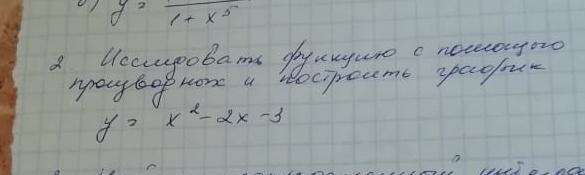 y =
1 + x⁵
2 Исследовать функцию с помощью
производных и построить график
y = x² - 2x - 3